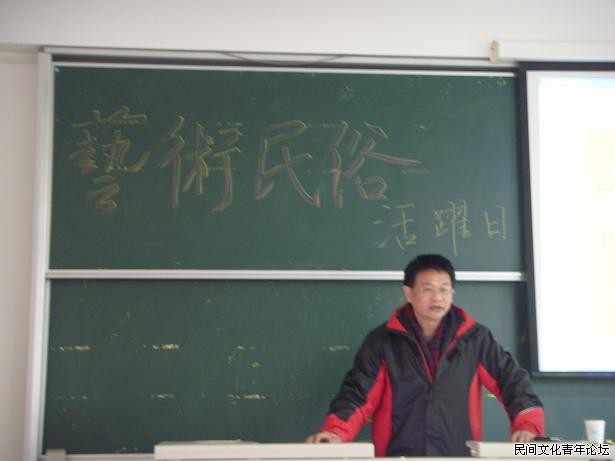 藝術民俗
活躍日
民间文化青年论坛